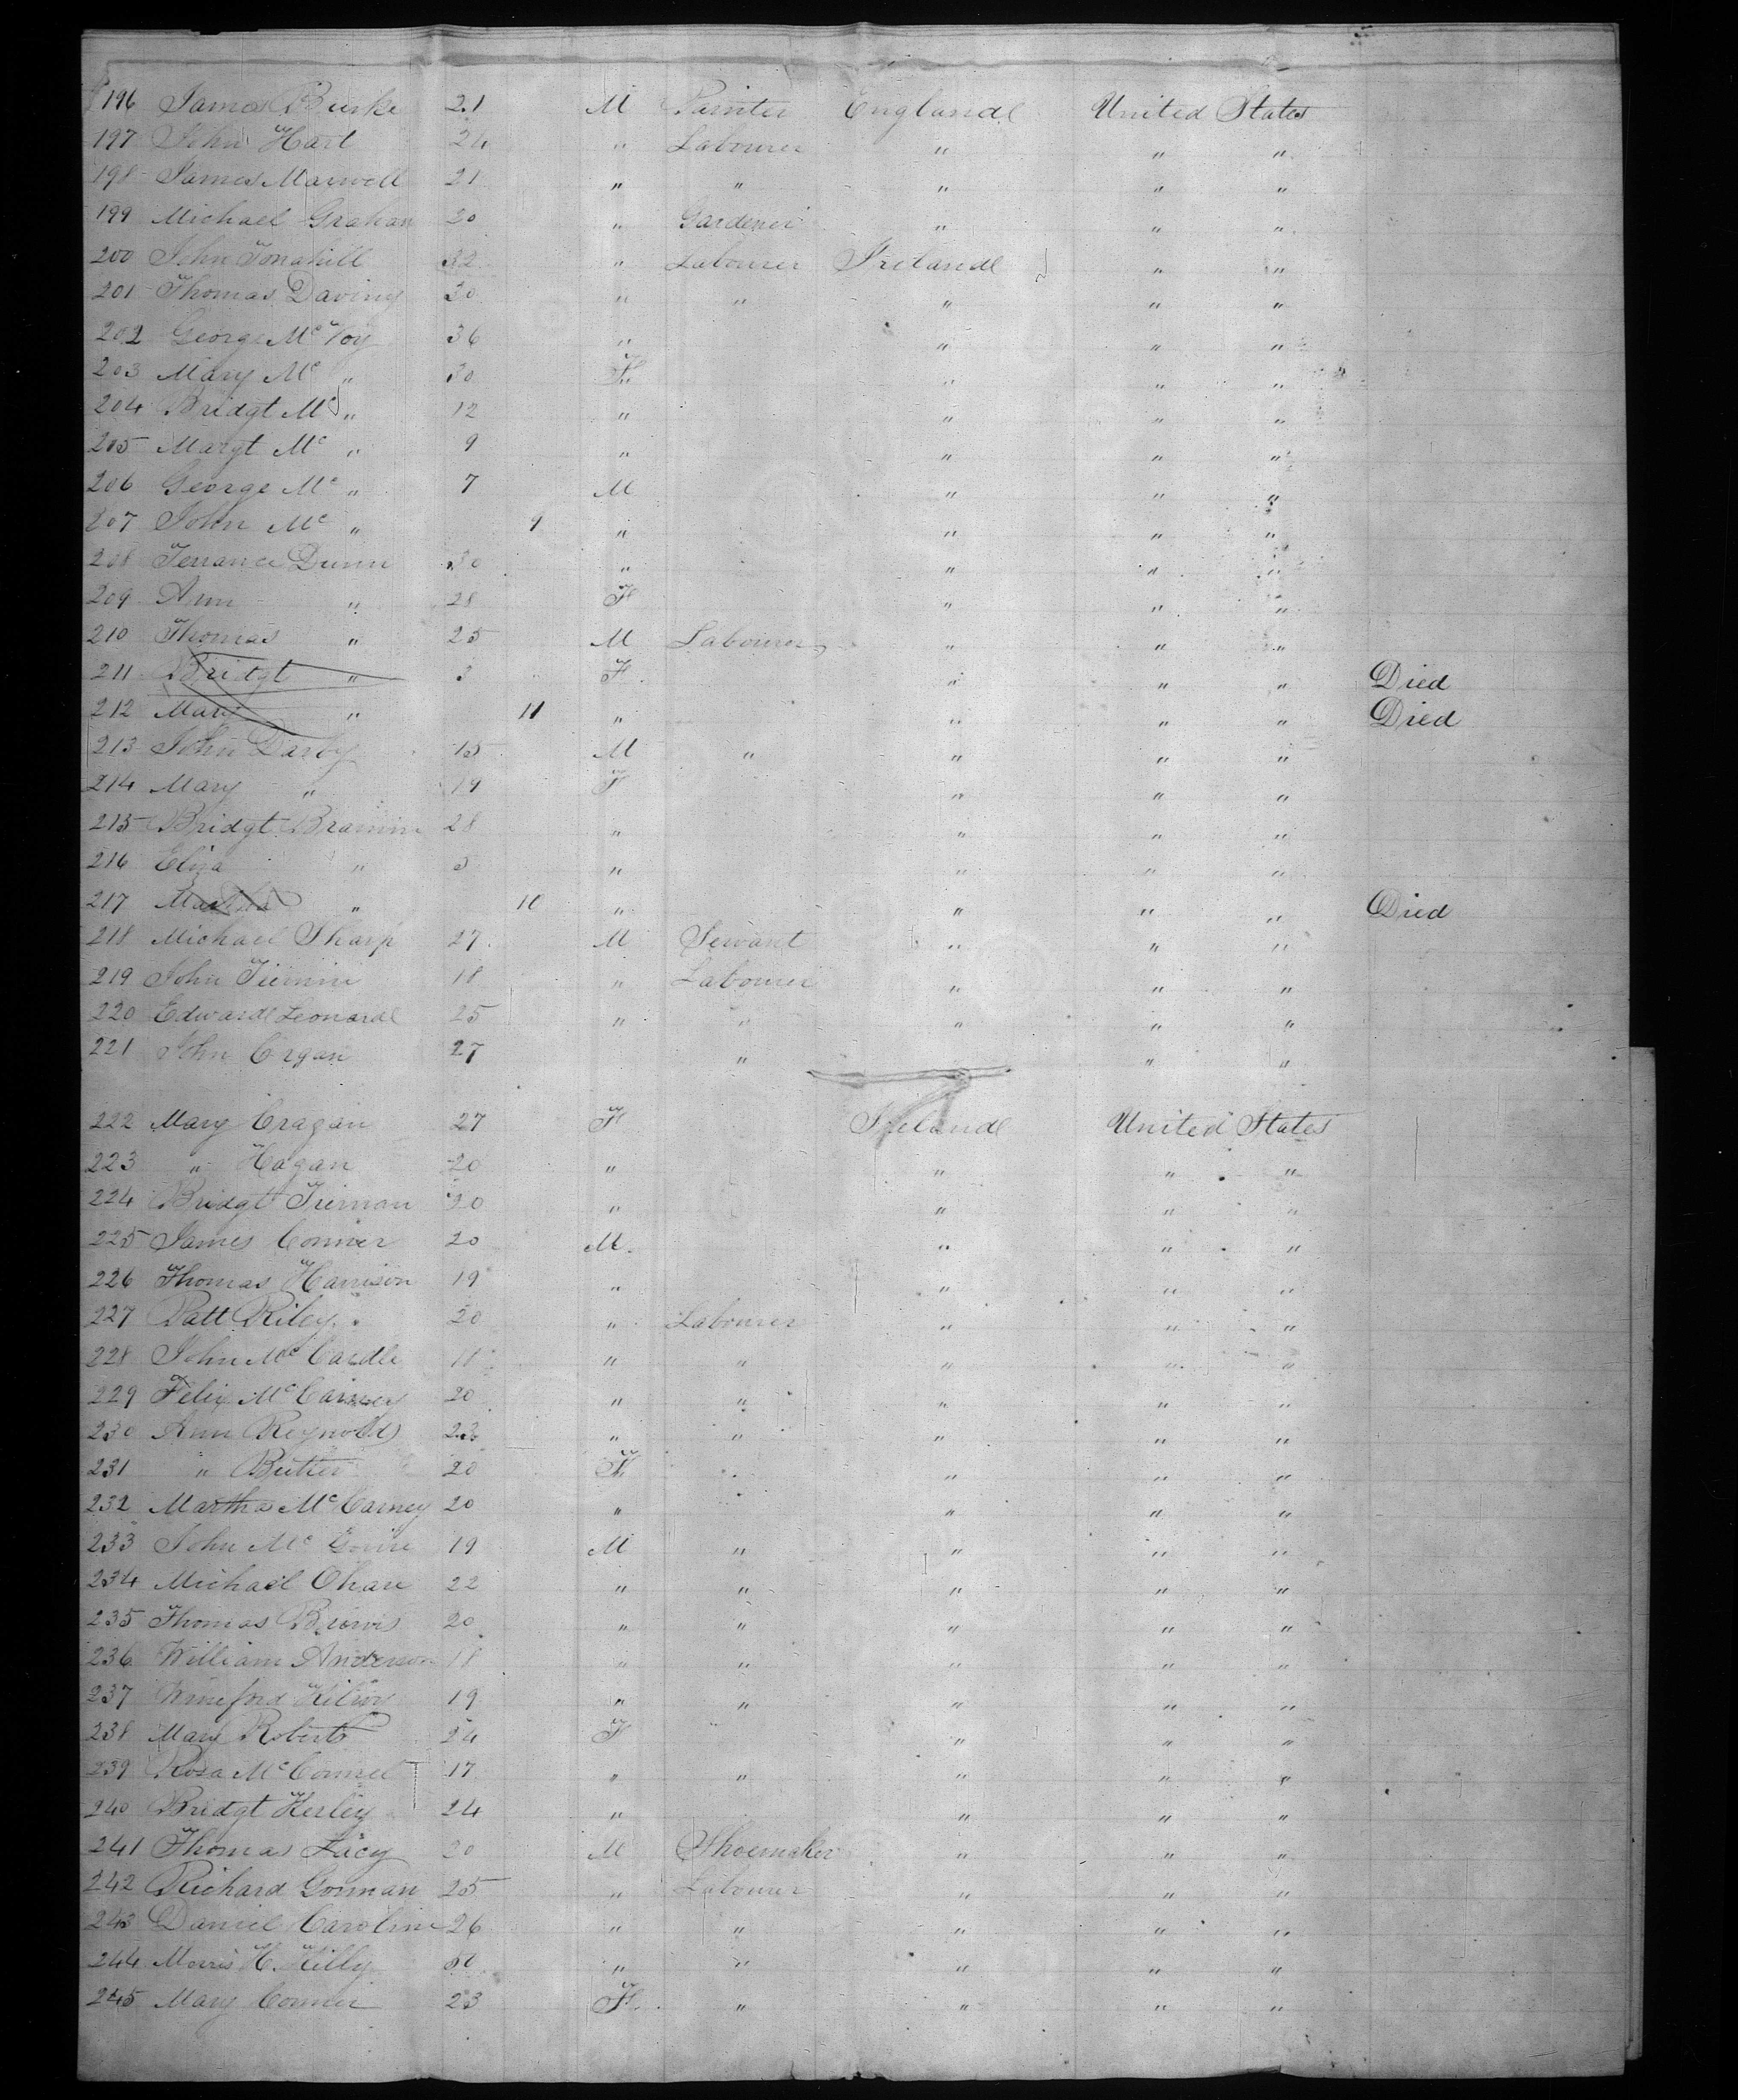 196 James Burke 21 M Painter England United States
197 John Hart 24 " Labourer " " "
198 James Maxwell 21 " " " " "
199 Michael Graham 20 " Gardener " " "
200 John Tonahill 32 " Labourer Ireland " "
201 Thomas Daviny 30 " " " " "
202 George Mc Voy 36 " " " "
203 Mary Mc " 30 F " " "
204 Bridgt Mc " 12 " " " "
205 Margt Mc " 9 " " " "
206 George Mc " 7 M " " "
207 John Mc " 9 " " " "
208 Terrance Dunn 30 " " " "
209 Ann " 28 F " " "
210 Thomas " 25 M Labourer " " "
211 Bridgt " 3 F " " " Died
212 Mary " 11 " " " " Died
213 John Darby 15 M " " " "
214 Mary " 19 F " " "
215 Bridgt Brannin 28 " " " "
216 Eliza " 3 " " " "
217 Martha " 10 " " " " Died
218 Michael Sharp 27 M Servant " " "
219 John Tiernin 18 " Labourer " " "
220 Edward Leonard 25 " " " " "
221 John Cragan 27 " " "
222 Mary Cragan 27 F Ireland United States
223 " Hagan 20 " " " "
224 Bridgt Tiernan 20 " " " "
225 James Conner 20 M " " "
226 Thomas Harrison 19 " " " "
227 Patt Riley 20 " Labourer " " "
228 John Mc Cardle 18 " " " " "
229 Felix Mc Carney 20 " " " " "
230 Ann Reynolds 23 " " " " "
231 " Butler 20 F " " "
232 Martha Mc Carney 20 " " " "
233 John Mc Guire 19 M " " " "
234 Michael Ohare 22 " " " " "
235 Thomas Brown 20 " " " " "
236 William Anderson 18 " " " " "
237 Wineford 19 " " " " "
238 Mary Roberts 24 F " " "
239 Rosa Mc Connel 17 " " " " "
240 Bridgt Kerley 24 " " " "
241 Thomas Lacy 20 M Shoemaker " " "
242 Richard Gorman 25 " Labourer " " "
243 Daniel Caroline 26 " " " " "
244 Morris H. Killy " " " " "
245 Mary Conner 23 F " " " "